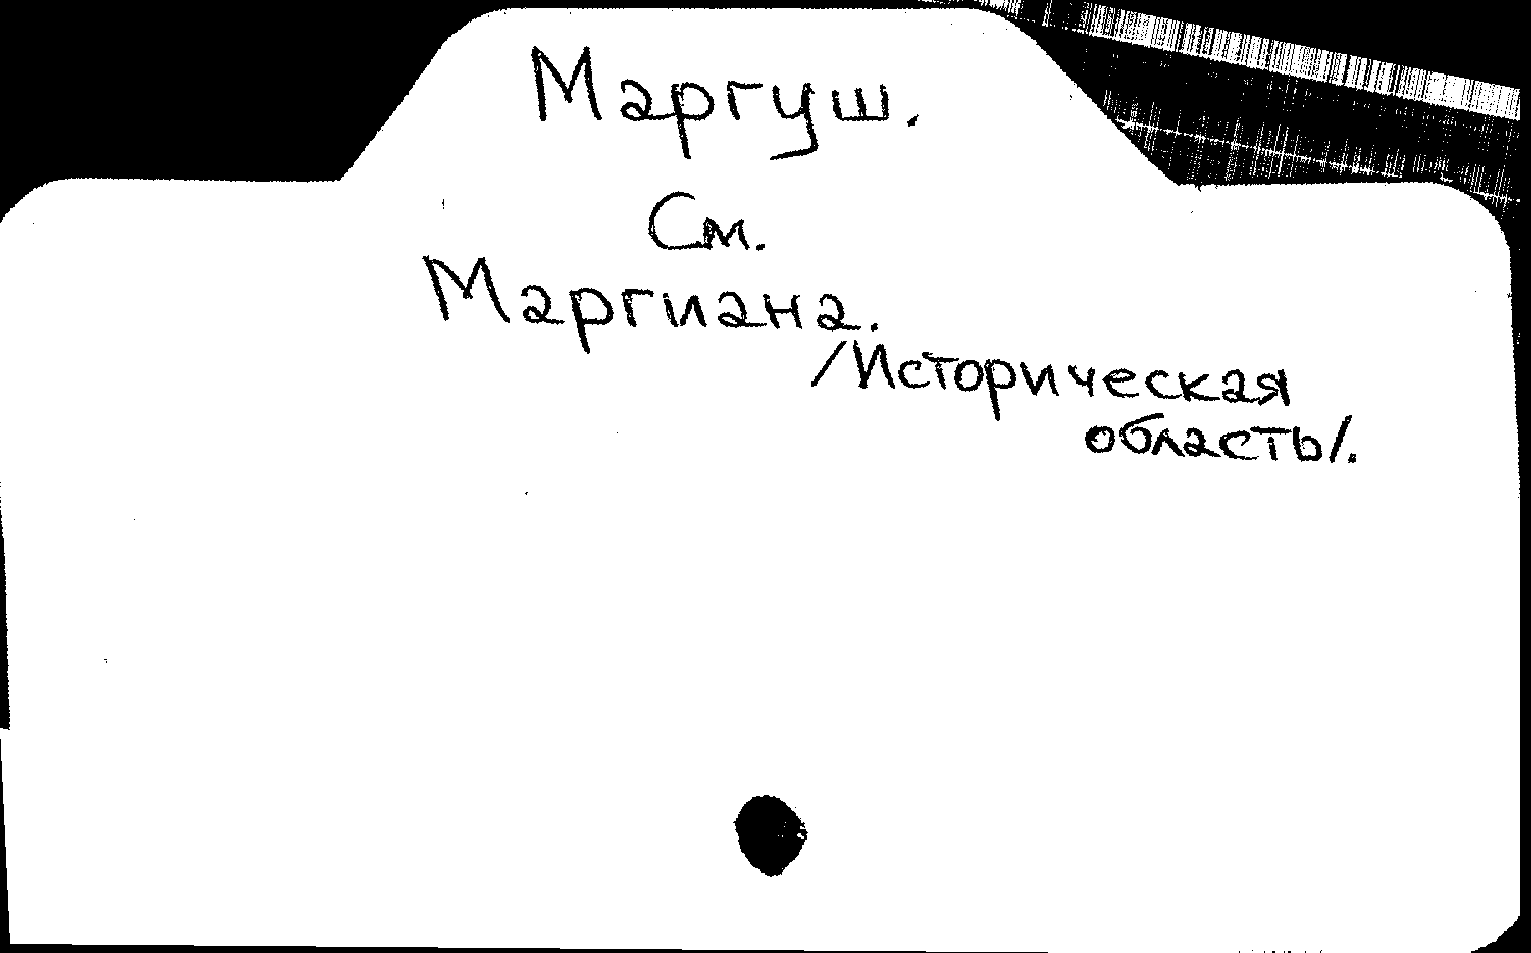 Маргуш.
См.
Маргиана.
/Историческая
область/.